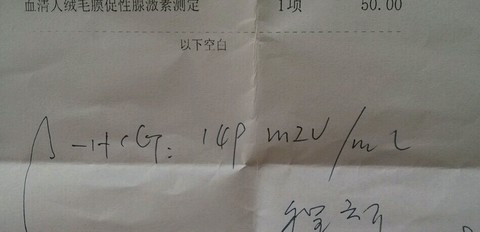 血清人绒毛膜促性腺激素测定 1项 50.00
以下空白
β-HCG: 149 mIU/ml